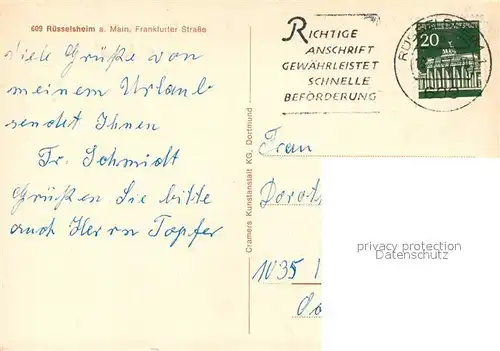 609 Rüsselsheim a. Main, Frankfurter Straße
Viele Grüße von
meinem Urlaub
sendet Ihnen
Fr. Schmidt
Grüßen Sie bitte
auch Herrn Topfer
Cramers Kunstanstalt KG, Dortmund
RICHTIGE
ANSCHRIFT
GEWÄHRLEISTET
SCHNELLE
BEFÖRDERUNG
20
Frau
Dorot
1035
privacy protection
Datenschutz